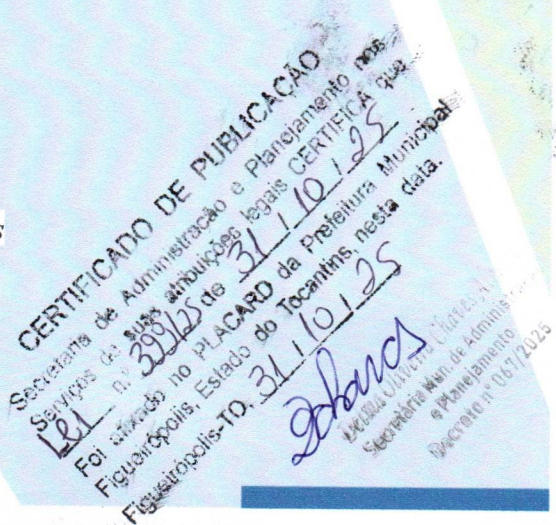 CERTIFICADO DE PUBLICAÇÃO
Secretaria de Administração e Planejamento nos
Serviços de suas atribuições legais CERTIFICA que
Lei n.º 399/25 de 31/10/25
Foi afixado no PLACARD da Prefeitura Municipal
Figueirópolis, Estado do Tocantins, nesta data.
Figueirópolis-TO, 31/10/25
Oliveira Chaves
Secretária Mun. de Administ
e Planejamento
Decreto nº 067/2025